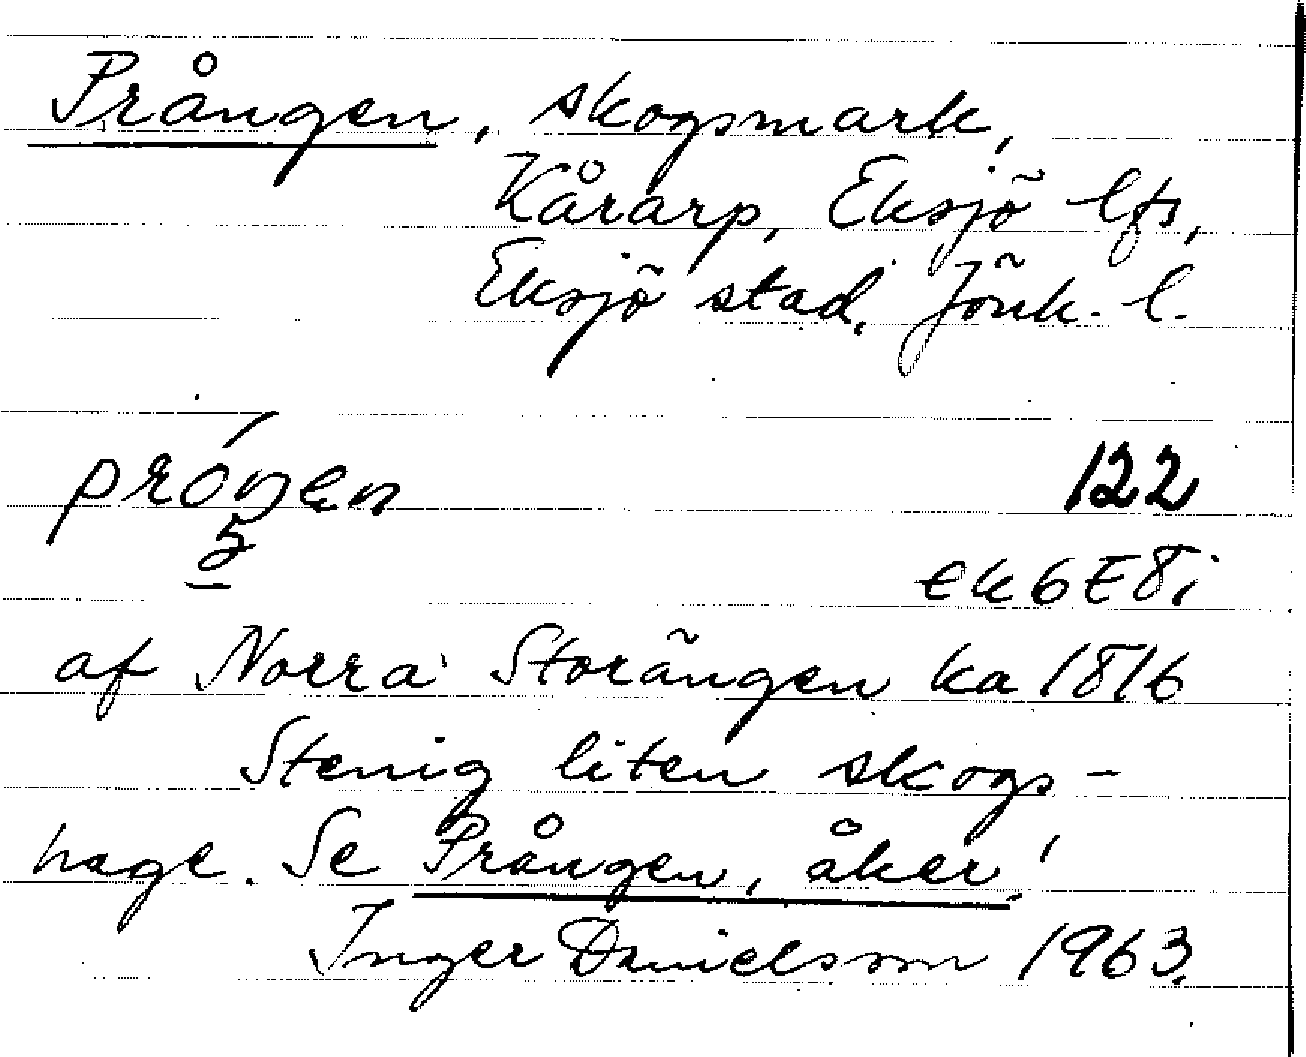 Prången, skogsmark,
Kårarp, Eksjö lfs,
Eksjö stad, Jönk. l.
próŋen 122
5
ek 6 E 8 i
af Norra Storängen ka 1816
Stenig liten skogs-
hage. Se Prången, åker!
Inger Danielsson 1963.